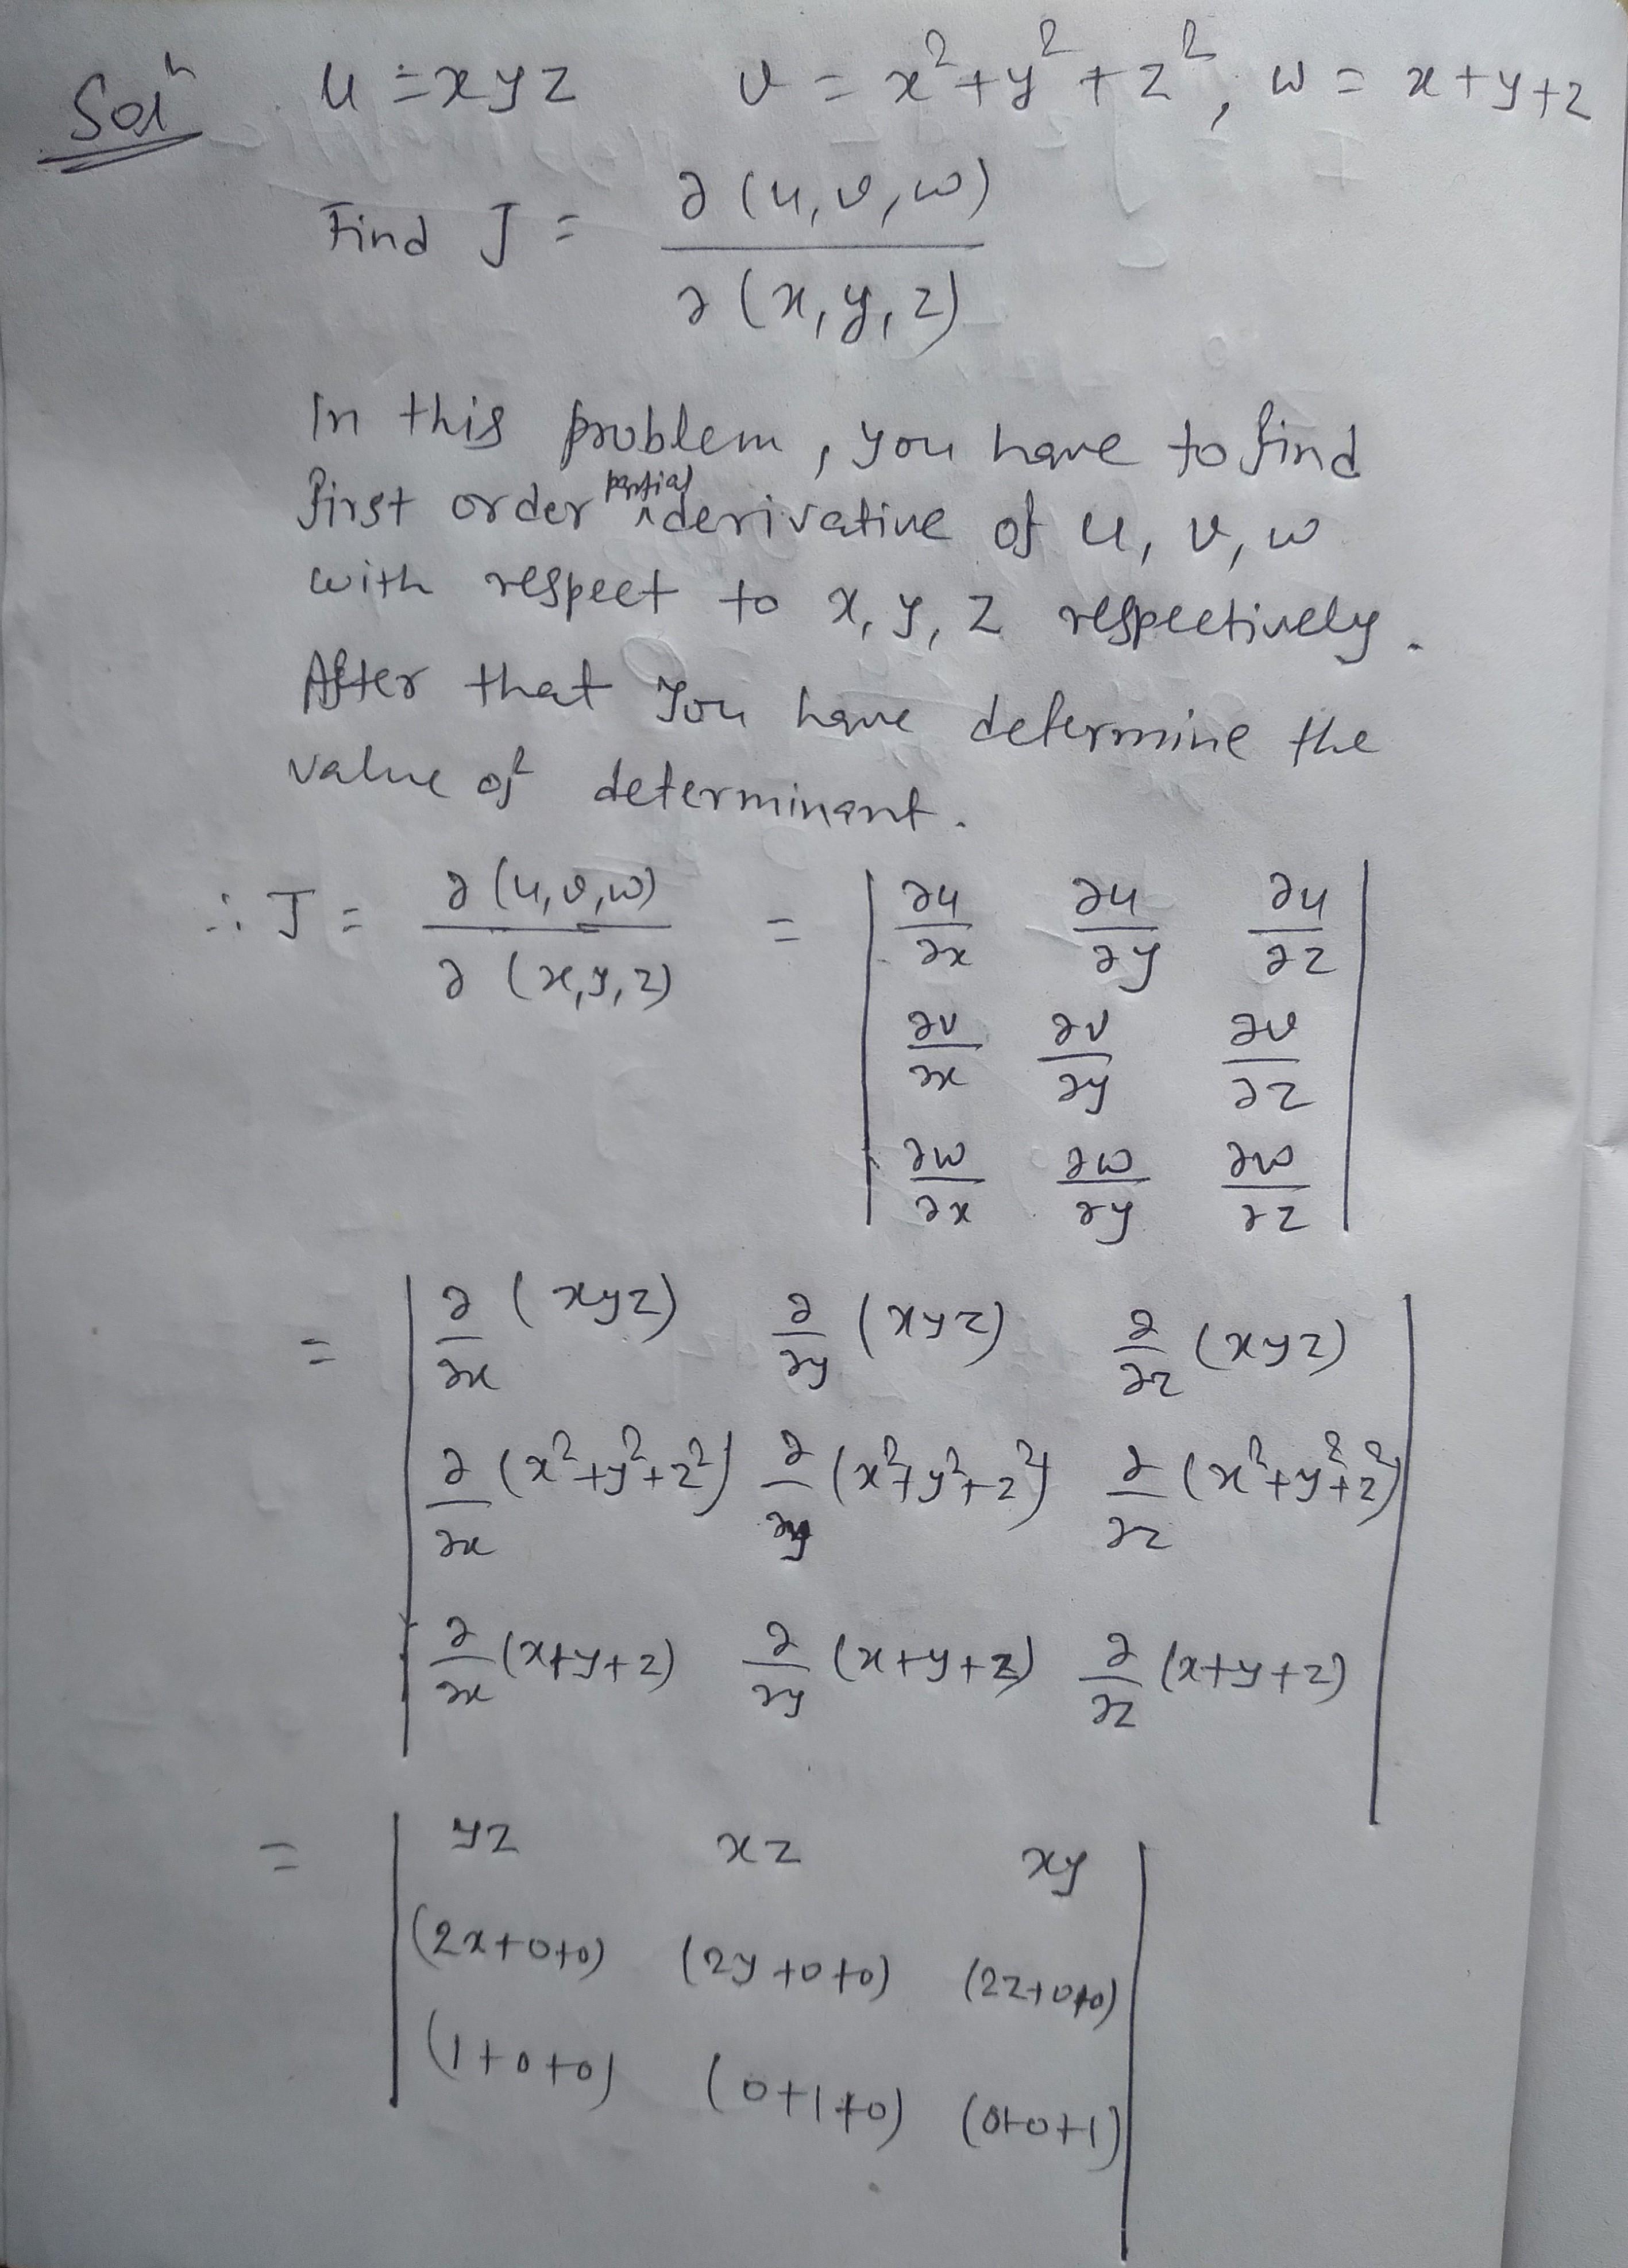 Solⁿ u = xyz v = x²+y²+z², w = x+y+z
Find J = ∂(u,v,w) / ∂(x,y,z)
In this problem, you have to find
first order partial derivative of u, v, w
with respect to x, y, z respectively.
After that you have determine the
value of determinant.
∴ J = ∂(u,v,w) / ∂(x,y,z) = | ∂u/∂x ∂u/∂y ∂u/∂z |
| ∂v/∂x ∂v/∂y ∂v/∂z |
| ∂w/∂x ∂w/∂y ∂w/∂z |
= | ∂/∂x (xyz) ∂/∂y (xyz) ∂/∂z (xyz) |
| ∂/∂x (x²+y²+z²) ∂/∂y (x²+y²+z²) ∂/∂z (x²+y²+z²) |
| ∂/∂x (x+y+z) ∂/∂y (x+y+z) ∂/∂z (x+y+z) |
= | yz xz xy |
| (2x+0+0) (2y+0+0) (2z+0+0) |
| (1+0+0) (0+1+0) (0+0+1) |